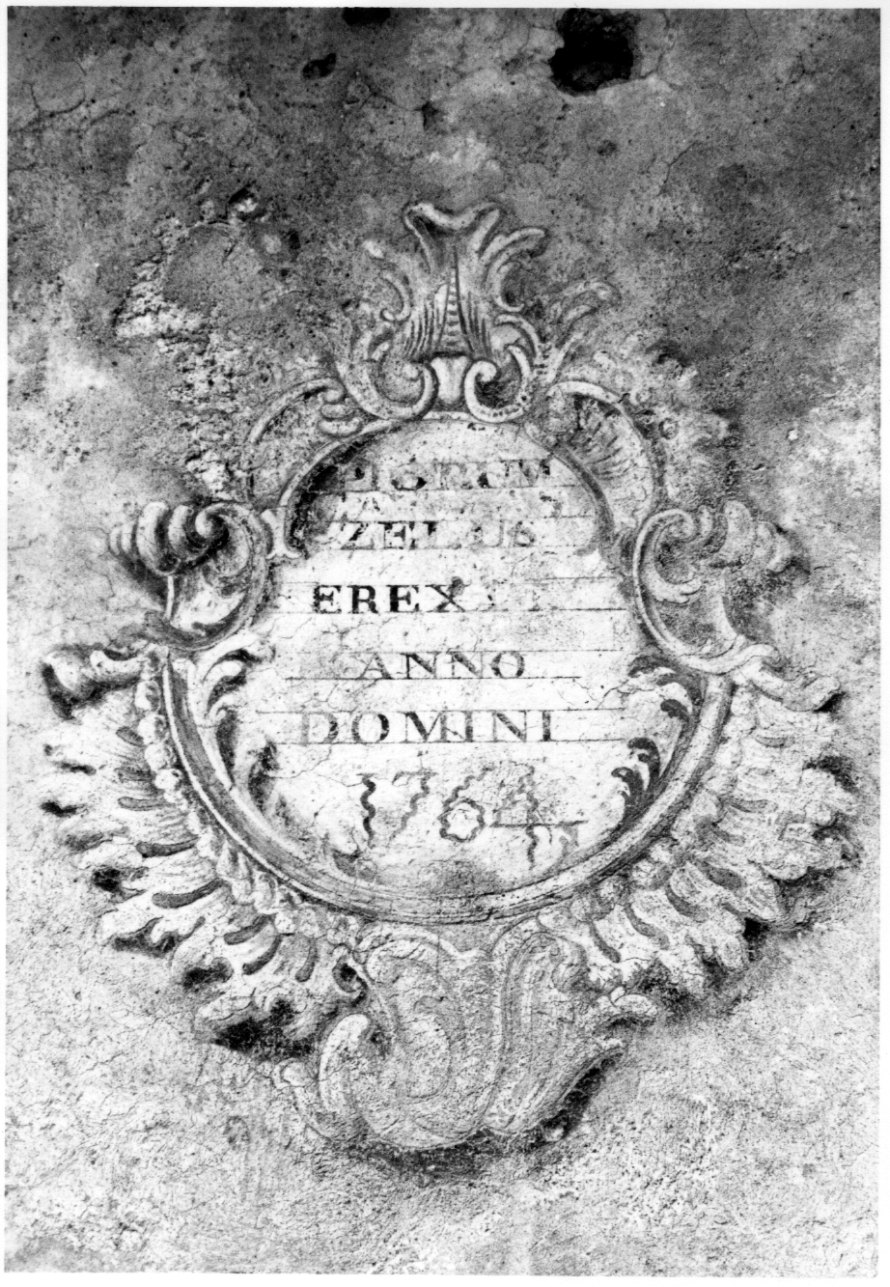 PIORUM
ZELUS
EREXIT
ANNO
DOMINI
1764